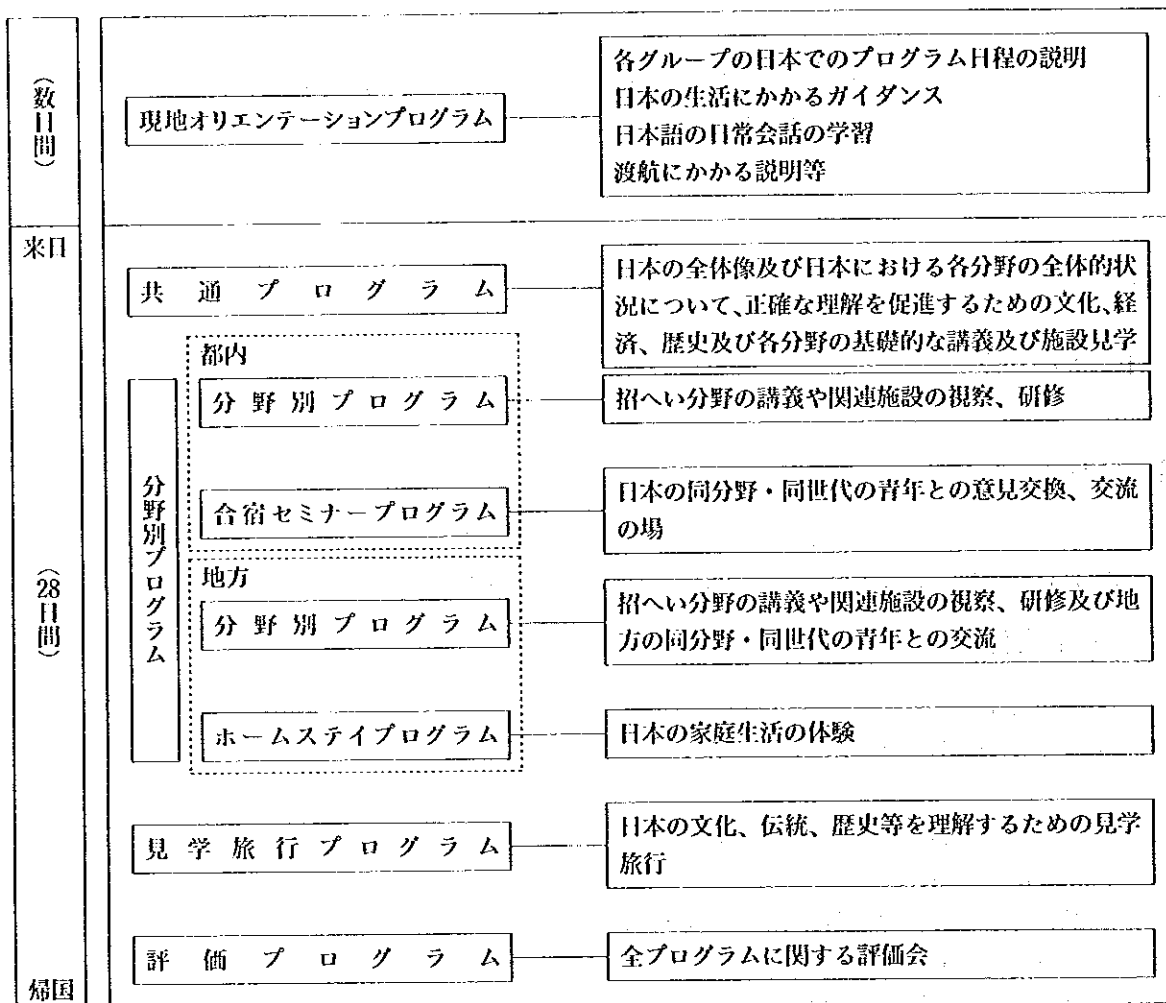 (数日間)
現地オリエンテーションプログラム
各グループの日本でのプログラム日程の説明
日本の生活にかかるガイダンス
日本語の日常会話の学習
渡航にかかる説明等
来日
(28日間)
共通プログラム
日本の全体像及び日本における各分野の全体的状
況について、正確な理解を促進するための文化、経
済、歴史及び各分野の基礎的な講義及び施設見学
分野別プログラム
都内
分野別プログラム
招へい分野の講義や関連施設の視察、研修
合宿セミナープログラム
日本の同分野・同世代の青年との意見交換、交流
の場
地方
分野別プログラム
招へい分野の講義や関連施設の視察、研修及び地
方の同分野・同世代の青年との交流
ホームステイプログラム
日本の家庭生活の体験
見学旅行プログラム
日本の文化、伝統、歴史等を理解するための見学
旅行
評価プログラム
全プログラムに関する評価会
帰国